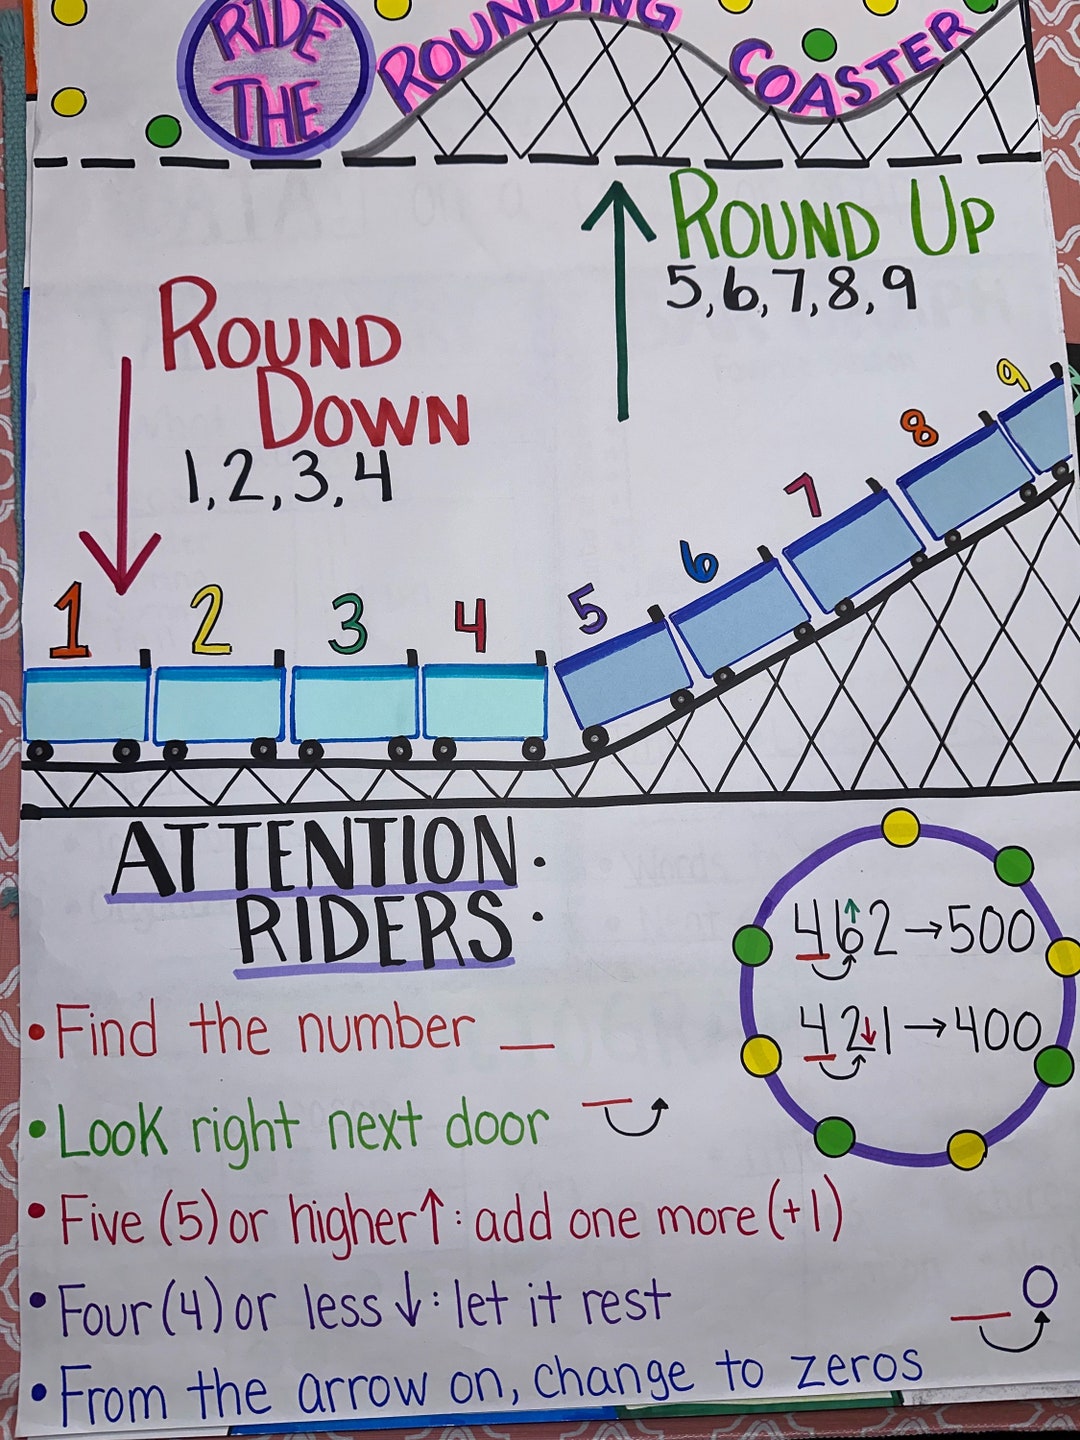 RIDE
THE
ROUNDING
COASTER
ROUND UP
5, 6, 7, 8, 9
ROUND
DOWN
1, 2, 3, 4
1 2 3 4 5 6 7 8 9
ATTENTION
RIDERS:
462 → 500
421 → 400
• Find the number __
• Look right next door
• Five (5) or higher ↑: add one more (+1)
• Four (4) or less ↓: let it rest
0
• From the arrow on, change to zeros